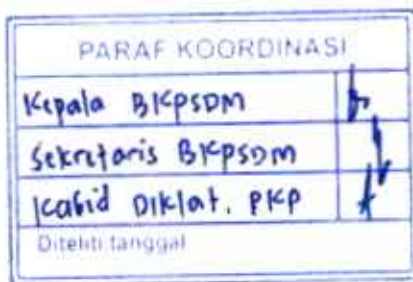 PARAF KOORDINASI
Kepala BKPSDM
Sekretaris BKPSDM
Kabid DIKlat. PKP
Diteliti tanggal